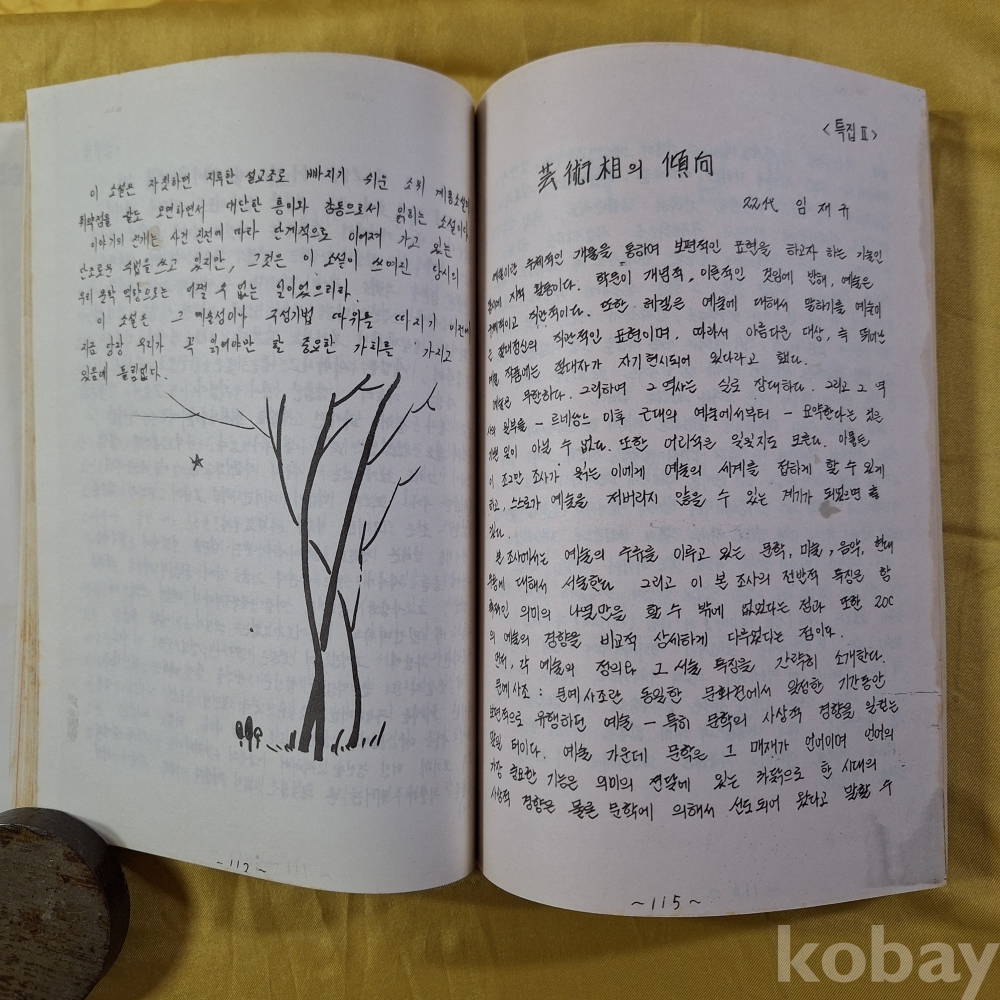 이 소설은 자칫하면 지루한 설교조로 빠지기 쉬운 소위 계몽소설의
취약점을 잘도 모면하면서 대단한 흥미와 감동으로서 읽히는 소설이다.
이야기의 전개는 사건 진전에 따라 단계적으로 이어져 가고 있는
단조로운 수법을 쓰고 있지만, 그것은 이 소설이 쓰여진 당시의
우리 문학 역량으로는 어쩔 수 없는 일이었으리라.
이 소설은 그 예술성이나 구성기법 따위를 따지기 이전에
지금 당장 우리가 꼭 읽어야만 할 중요한 가치를 가지고
있음에 틀림없다.
~112~
<특집 II>
芸術相의 傾向
22代 임재규
예술이란 주체적인 개성을 통하여 보편적인 표현을 하고자 하는 기술인
동시에 지적 활동이다. 학문이 개념적, 이론적인 것임에 반해, 예술은
구체적이고 직관적이다. 또한 헤겔은 예술에 대해서 말하기를 예술이
은 절대정신의 직관적인 표현이며, 따라서 아름다운 대상, 즉 뛰어난
예술 작품에는 절대자가 자기현시되어 있다라고 했다.
예술은 무한하다. 그리하여 그 역사는 실로 장대하다. 그리고 그 역
사의 일부를 - 르네쌍스 이후 근대의 예술에서부터 - 요약한다는 것은
일이 아닐 수 없다. 또한 어리석은 일일지도 모른다. 아뭏든
이 조그만 조사가 읽는 이에게 예술의 세계를 접하게 할 수 있게
하고, 스스로가 예술을 저버리지 않을 수 있는 계기가 되었으면 좋
겠다.
본 조사에서는 예술의 주류를 이루고 있는 문학, 미술, 음악, 현대
무용에 대해서 서술했다. 그리고 이 본 조사의 전반적 특징은 함
축적인 의미의 나열만을 할 수 밖에 없었다는 점과 또한 20C
의 예술의 경향을 비교적 상세하게 다루었다는 점이다.
먼저, 각 예술의 정의와 그 서술 특징을 간략히 소개한다.
문예사조 : 문예사조란 동일한 문화권에서 일정한 기간동안
보편적으로 유행하던 예술 - 특히 문학의 사상적 경향을 일컫는
말일 터이다. 예술 가운데 문학은 그 매재가 언어이며 언어의
가장 중요한 기능은 의미의 전달에 있는 까닭으로 한 시대의
사상적 경향은 물론 문학에 의해서 선도되어 왔다고 말할 수
~115~
kobay